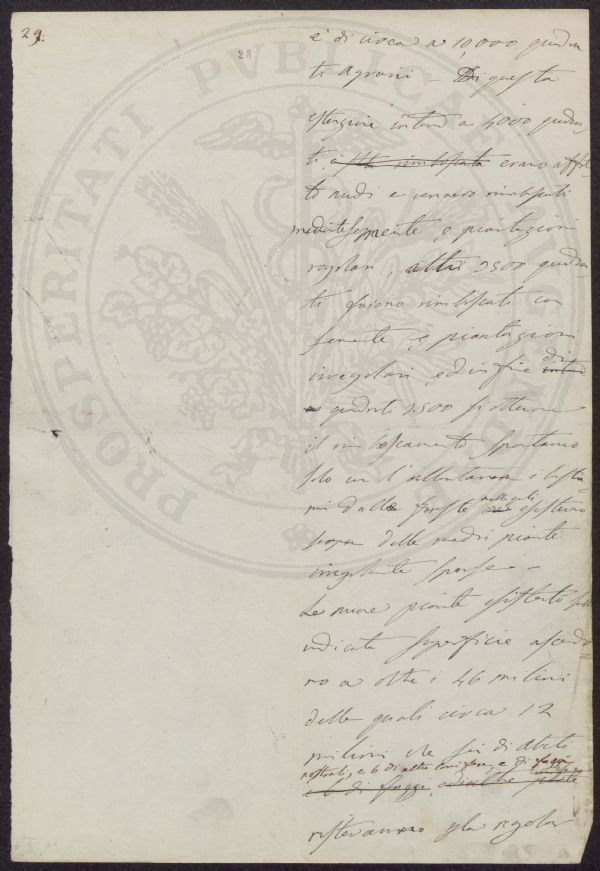 29.
28
è di circa a 10,000 quadra
ti agrarii – Di questa
estensione intorno a 5000 quadra
ti erano affat
to nudi e vennero rimboscati
mediante semente e piantagioni
regolari, altri 2500 quadra
ti furono rimboscati con
semente e piantagioni
irregolari, ed infine di
quadrati 2500 si ottenne
il rimboscamento spontaneo
solo con l'allontanare i bestia=
mi dalle foreste nelle quali esistevano
sempre delle madri piante
irregolarmente sparse –
Le nuove piante esistenti sulla
indicata superficie ascendo=
no a oltre i 46 milioni
delle quali circa 12
milioni che sei di abeti
nostrali, e 6 di altre conifere, e di faggi
e 6 di faggi, ed altre piante
per la regolar
PROSPERITATI PVBLICAE AVGENDAE